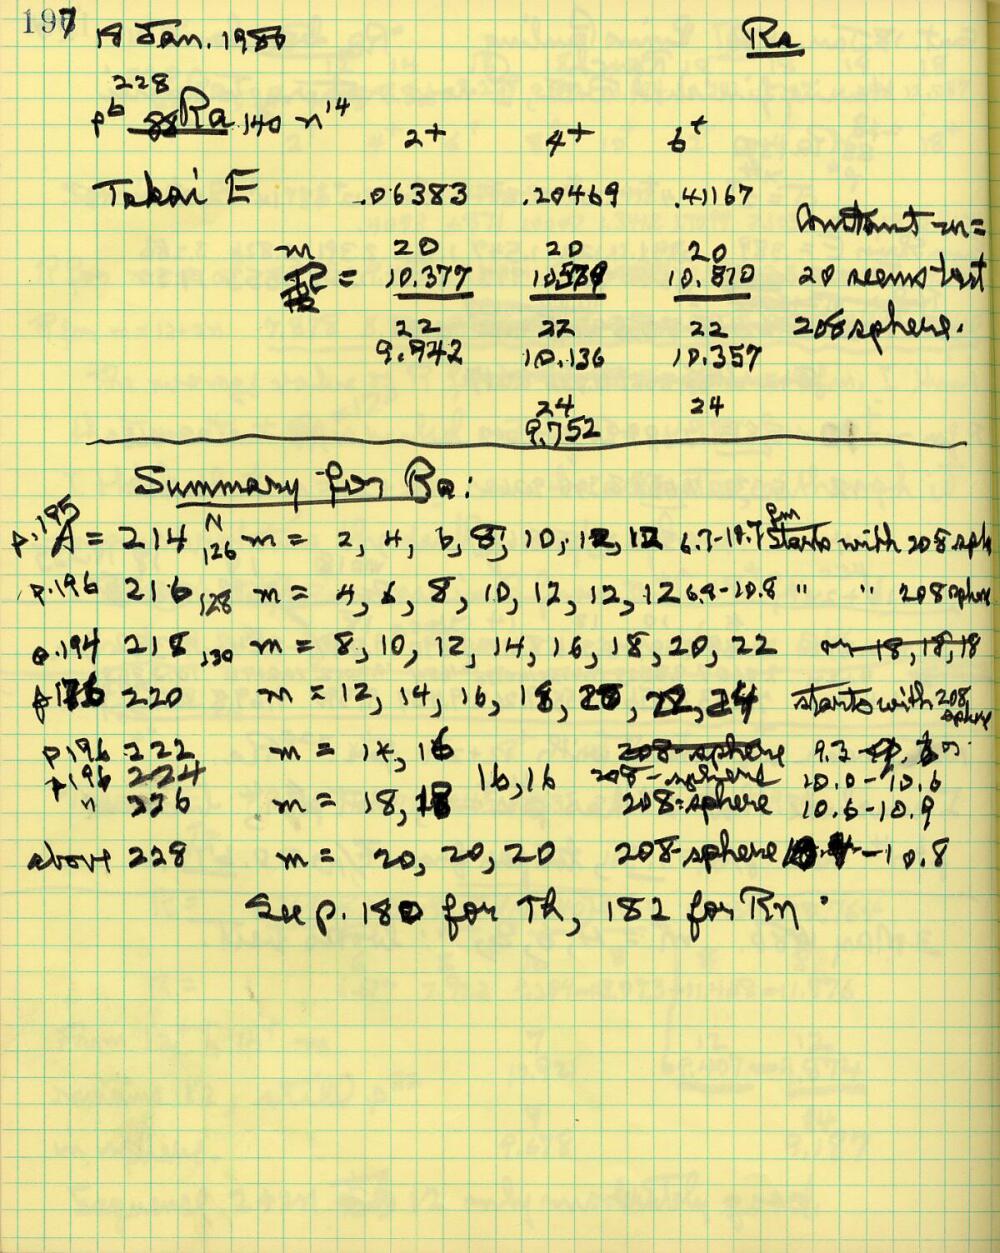 197 18 Jan. 1986 Ra
228
p6 88Ra 140 n14
2+ 4+ 6+
Takai E .06383 .20469 .41167
constant m=
m 20 20 20
R = 10.377 10.10.810 20 seems best
22 22 22 208 sphere.
9.942 10.136 10.357
24 24
9.752
Summary for Ra:
p.195 A = 214 N 126 m = 2, 4, 6, 8, 10, 12, 12 6.7-10.7 fm Starts with 208 sph
p.196 216 128 m = 4, 6, 8, 10, 12, 12, 12 6.9-10.8 " " 208 sphere
p.194 218 130 m = 8, 10, 12, 14, 16, 18, 20, 22 or 18, 18, 18
p 220 m = 12, 14, 16, 18, 20, 22, 24 starts with 208 sphere
p196 222 m = 14, 16 208-sphere 9.3
p196 224 16, 16 208-sphere 10.0-10.6
" 226 m = 18, 18 208-sphere 10.6-10.9
above 228 m = 20, 20, 20 208-sphere -10.8
See p. 180 for Th, 182 for Rn.